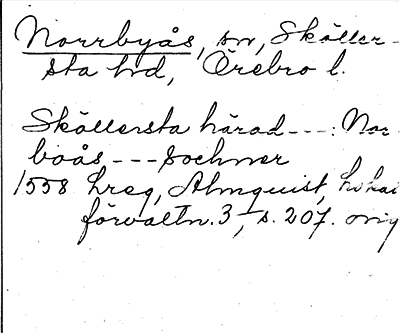 Norrbyås, sn, Sköller-
sta hd, Örebro l.
Sköllersta härad---: Nor
boås---Sochner
1558 hreg, Almquist, lokal
förvaltn. 3, s. 207. orig